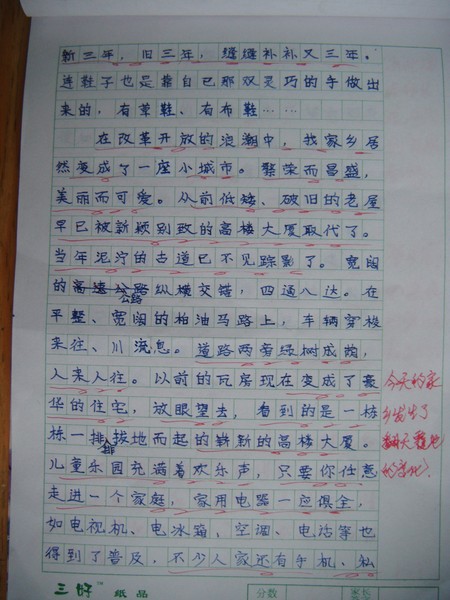 新三年，旧三年，缝缝补补又三年。
连鞋子也是靠自己那双灵巧的手做出
来的，有草鞋、有布鞋……
在改革开放的浪潮中，我家乡居
然变成了一座小城市。繁荣而昌盛，
美丽而可爱。从前低矮、破旧的老屋
早已被新颖别致的高楼大厦取代了。
当年泥泞的古道已不见踪影了。宽阔
的公路纵横交错，四通八达。在
平整、宽阔的柏油马路上，车辆穿梭
来往、川流息。道路两旁绿树成荫，
人来人往。以前的瓦房现在变成了豪
华的住宅，放眼望去，看到的是一栋
栋一排排拔地而起的崭新的高楼大厦。
儿童乐园充满着欢乐声，只要你任意
走进一个家庭，家用电器一应俱全，
如电视机、电冰箱、空调、电话等也
得到了普及，不少人家还有手机、私
今天的家
乡发生了
翻天覆地
的变化。
三好 纸品
分数
家长